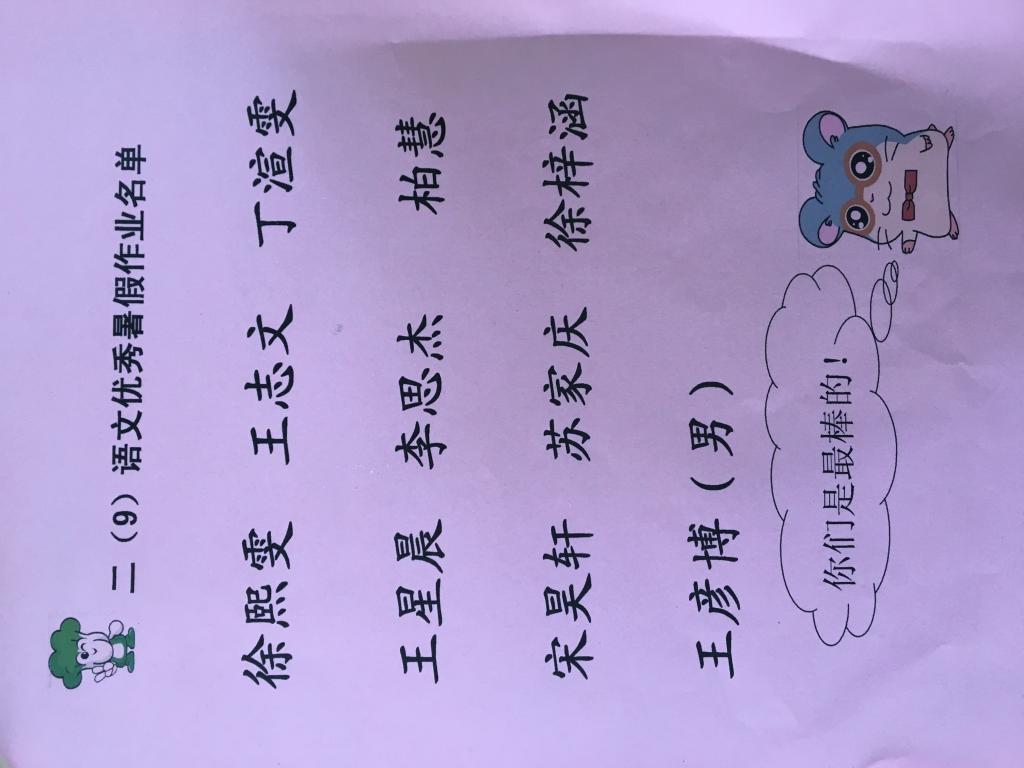 二（9）语文优秀暑假作业名单
徐熙雯 王志文 丁渲雯
王星晨 李思杰 柏慧
宋昊轩 苏家庆 徐梓涵
王彦博（男）
你们是最棒的！